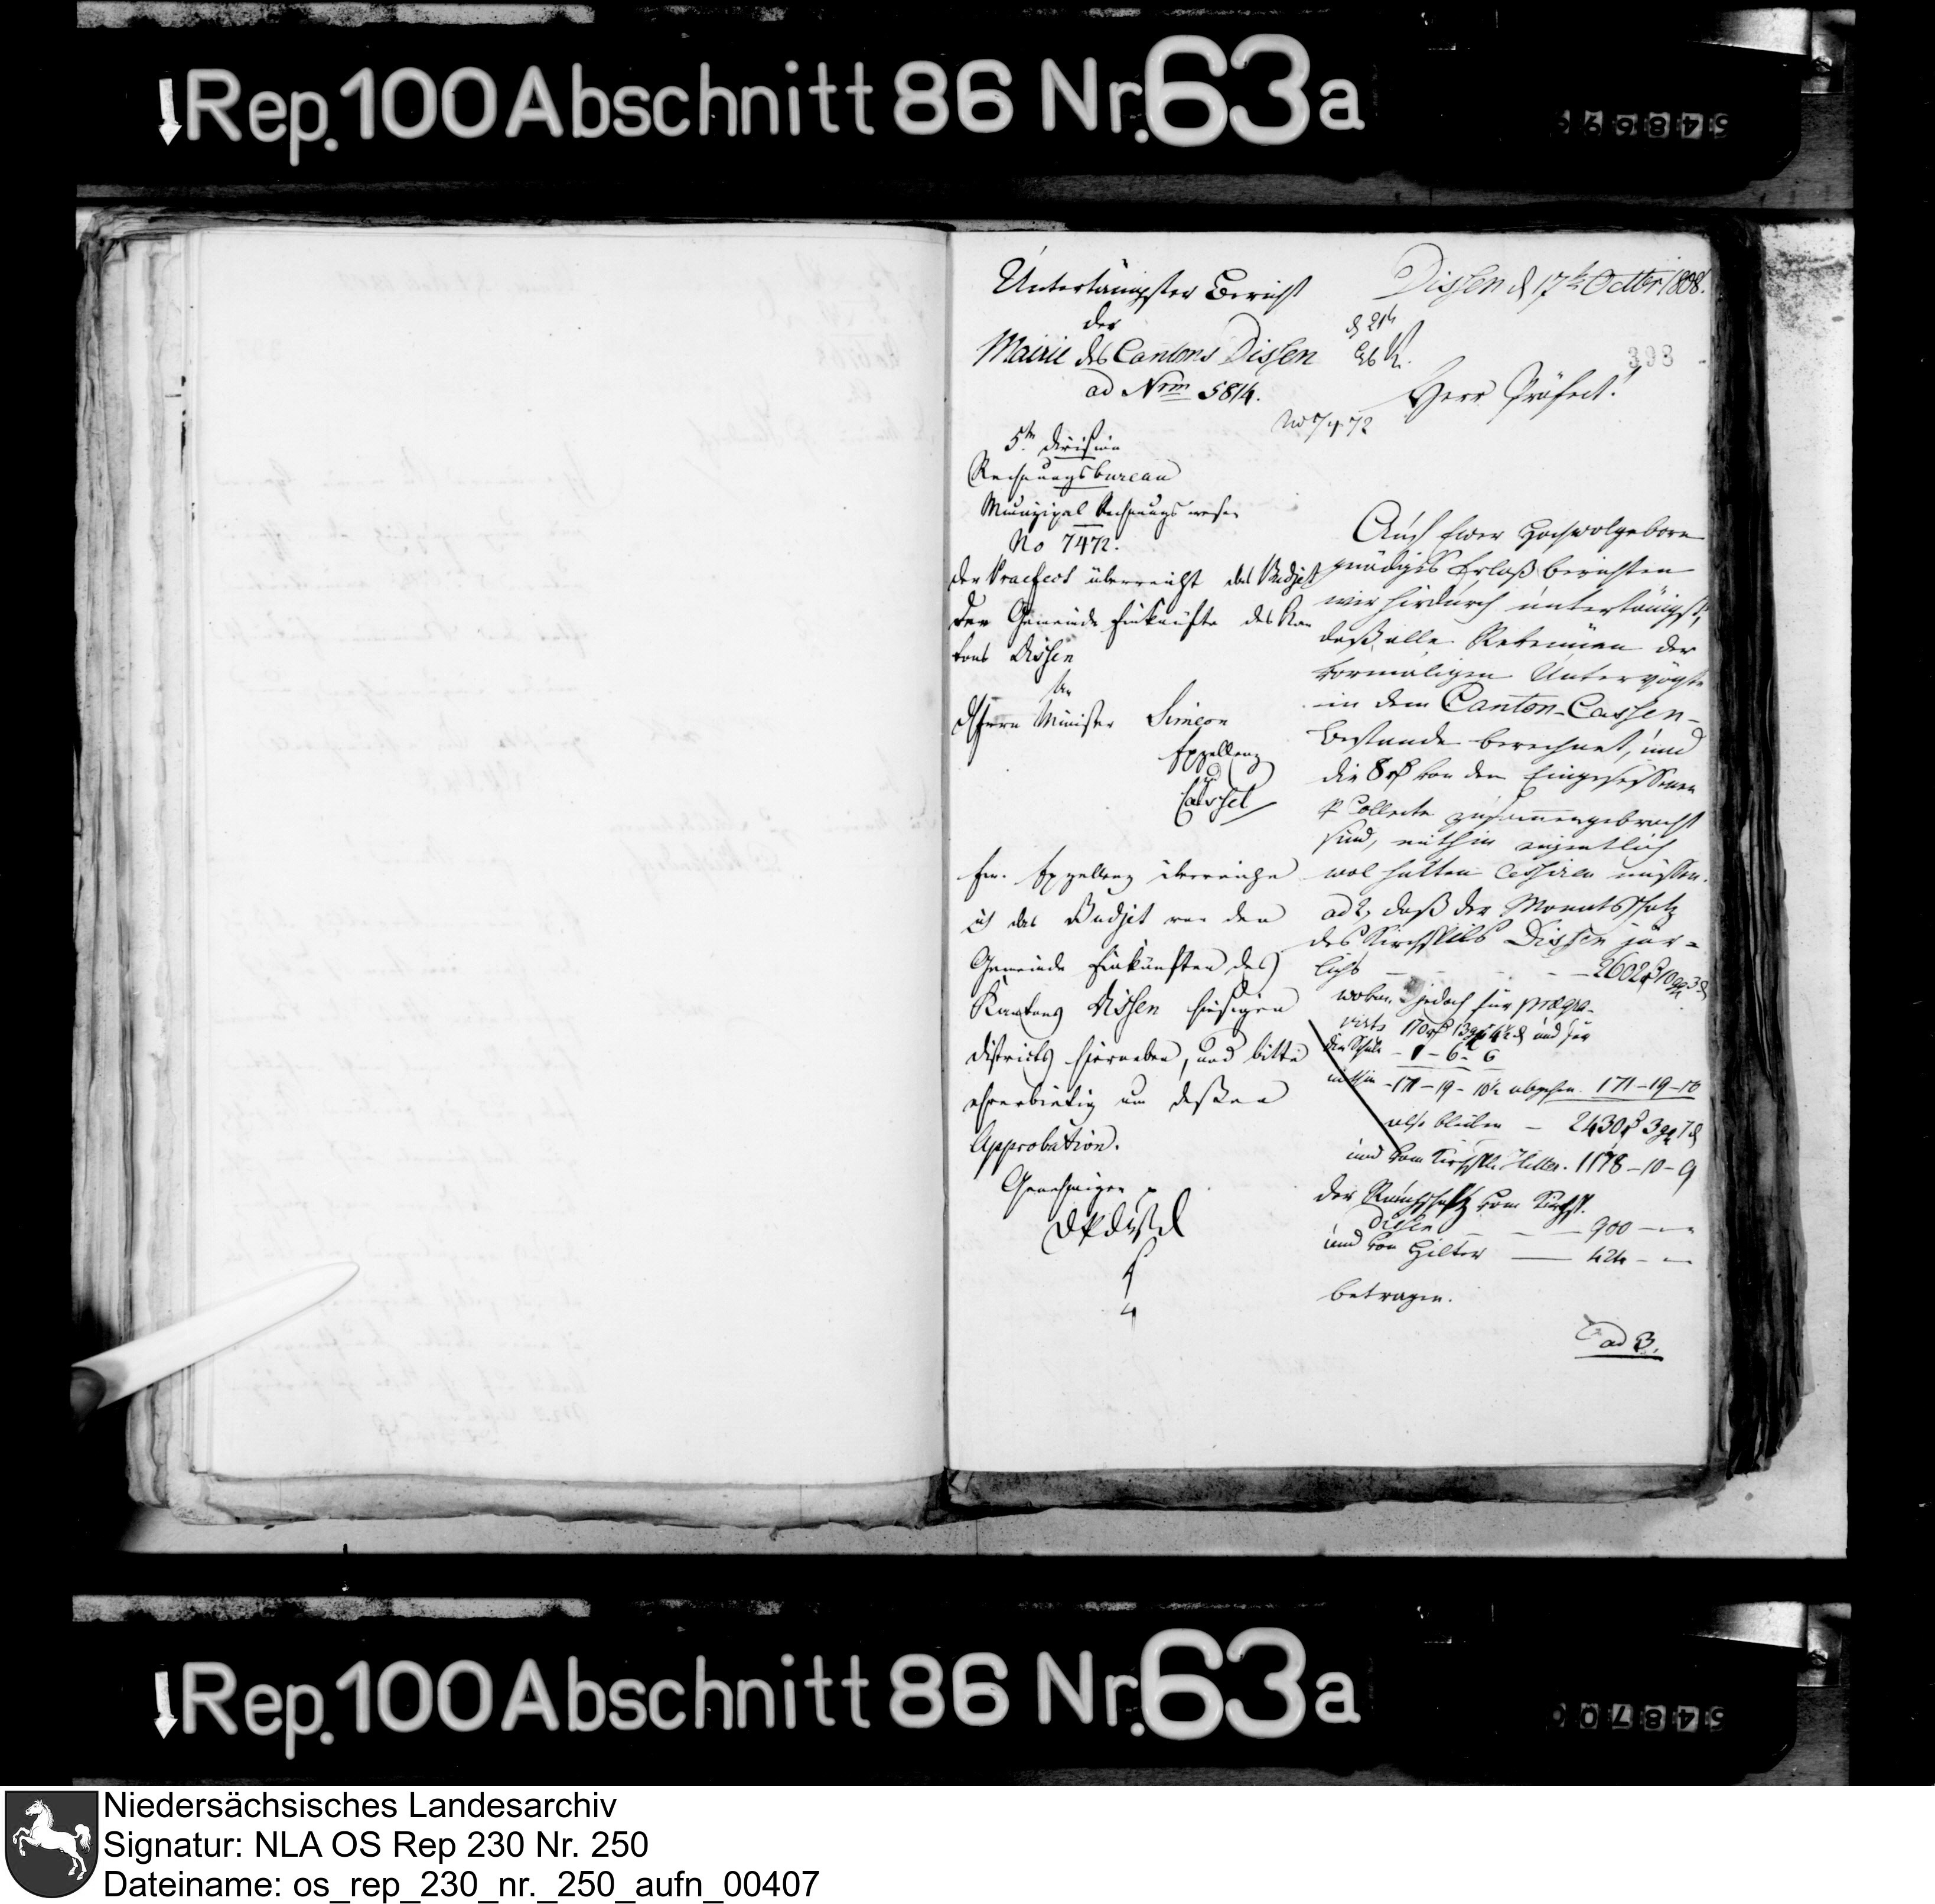 Rep. 100 Abschnitt 86 Nr. 63a
Untertänigster Bericht
der
Mairie des Cantons Dissen
ad Nrm 5814.
5te Division
Rechnungsbureau
Munizipal Rechnungswesen
No 7472.
Der Praefect überreicht das Budjet
der Gemeinde Einkünfte des Kan
tons Dissen
An
Herrn Minister Simeon
Exzellenz
Cassel
Ew. Exzellenz überreiche
ich das Budjet von den
Gemeinde Einkünften des
Kantons Dissen hiesigen
Districts hierneben, und bitte
ehrerbietig um dessen
Approbation.
Genehmigen
Dissen d 17t Octbr 1808.
d 21t
393
Herr Präfect!
No 7472
Auf Ewer Hochwolgeborn
gnädigen Erlaß berichten
wir hiedurch untertänigst,
daß alle Revenüen der
vormaligen Untervögte
in dem Canton-Cassen-
Bestande berechnet, und
die 8 rth von den Eingesessenen
p Collecte zusammengebracht
sind, mithin eigentlich
wol hätten cessiren müssen.
ad 2, daß der Monatsschatz
des Kirchspiels Dissen jär-
lichs - - - 2602 10 3
wovon jedoch für
170 13 4½ und für
die Schule - 1 - 6 - 6
mithin - 171 - 19 - 10½ abgehen. 171 - 19 - 10
also bleiben - 2430 3 7
und vom Kirchspl. Hilter. 1178 - 10 - 9
der Rauchschatz vom Kirchsp.
Dissen - - 900 - -
und von Hilter - 424 - -
betragen.
ad 3.
Rep. 100 Abschnitt 86 Nr. 63a
Niedersächsisches Landesarchiv
Signatur: NLA OS Rep 230 Nr. 250
Dateiname: os_rep_230_nr._250_aufn_00407